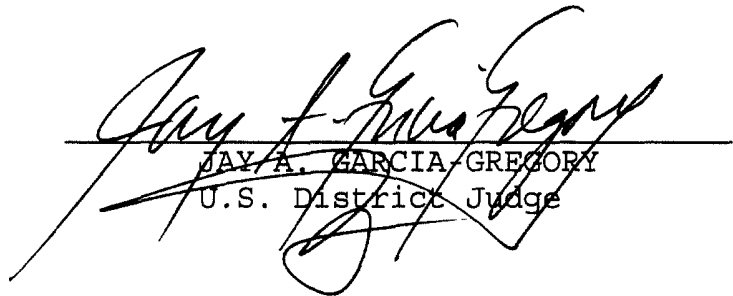 Jay A. Garcia-Gregory
JAY A. GARCIA-GREGORY
U.S. District Judge